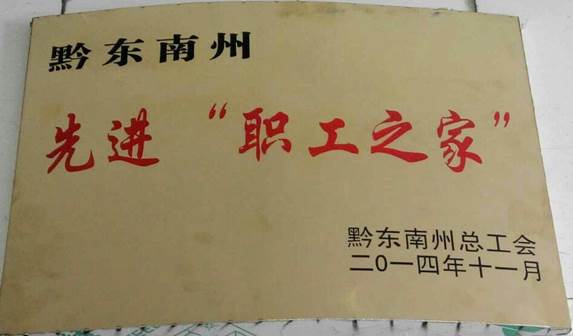 黔东南州
先进“职工之家”
黔东南州总工会
二0一四年十一月